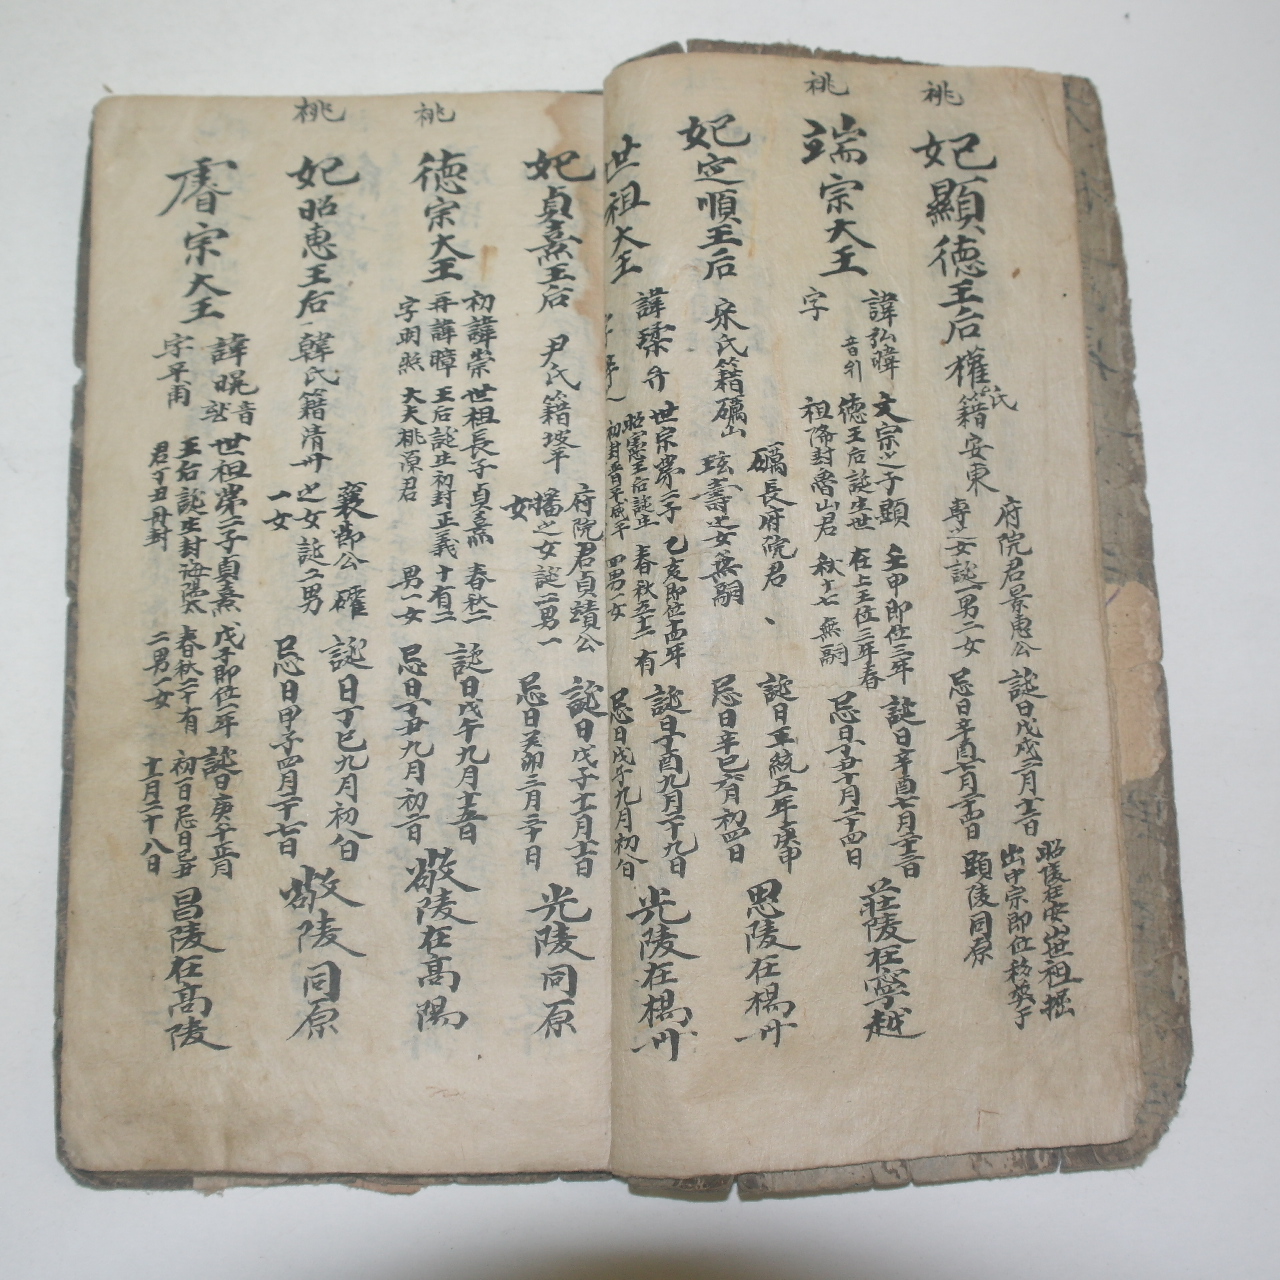 祧
妃顯德王后
權氏籍安東
府院君景惠公
專之女誕一男二女
誕日戊戌三月十二日
忌日辛酉七月二十四日
顯陵同原
昭陵在安山世祖掘
出中宗卽位移葬于
祧
端宗大王
諱弘暐
音引
字
文宗之子顯
德王后誕生世
祖降封魯山君
壬申卽位三年
在上王位三年春
秋十七無嗣
誕日辛酉七月二十三日
忌日丁丑十月二十四日
莊陵在寧越
妃定順王后
宋氏籍礪山
礪良府院君
玹壽之女無嗣
誕日正統五年庚申
忌日辛巳六月初四日
思陵在楊州
世祖大王
諱瑈
世宗第二子
昭憲王后誕生
初封晉平咸平
乙亥卽位十四年
春秋五十二有
四男一女
誕日丁酉九月二十九日
忌日戊子九月初八日
光陵在楊州
妃貞熹王后
尹氏籍坡平
府院君貞靖公
璠之女誕二男一
女
誕日戊子十一月十一日
忌日癸卯三月三十日
光陵同原
祧
德宗大王
初諱崇
再諱暲
字明照
世祖長子貞熹
王后誕生初封正義
大夫桃源君
春秋二
十有二
男一女
誕日戊午九月十五日
忌日丁丑九月初二日
敬陵在高陽
祧
妃昭惠王后
韓氏籍清州
襄節公確
之女誕二男
一女
誕日丁巳九月初八日
忌日甲子四月二十七日
敬陵同原
睿宗大王
諱晄音
字平甫
世祖第二子貞熹
王后誕生封海陽大
君丁丑冊封
戊子卽位一年
春秋二十有
二男一女
誕日庚午正月
初一日忌日己丑
十一月二十八日
昌陵在高陵